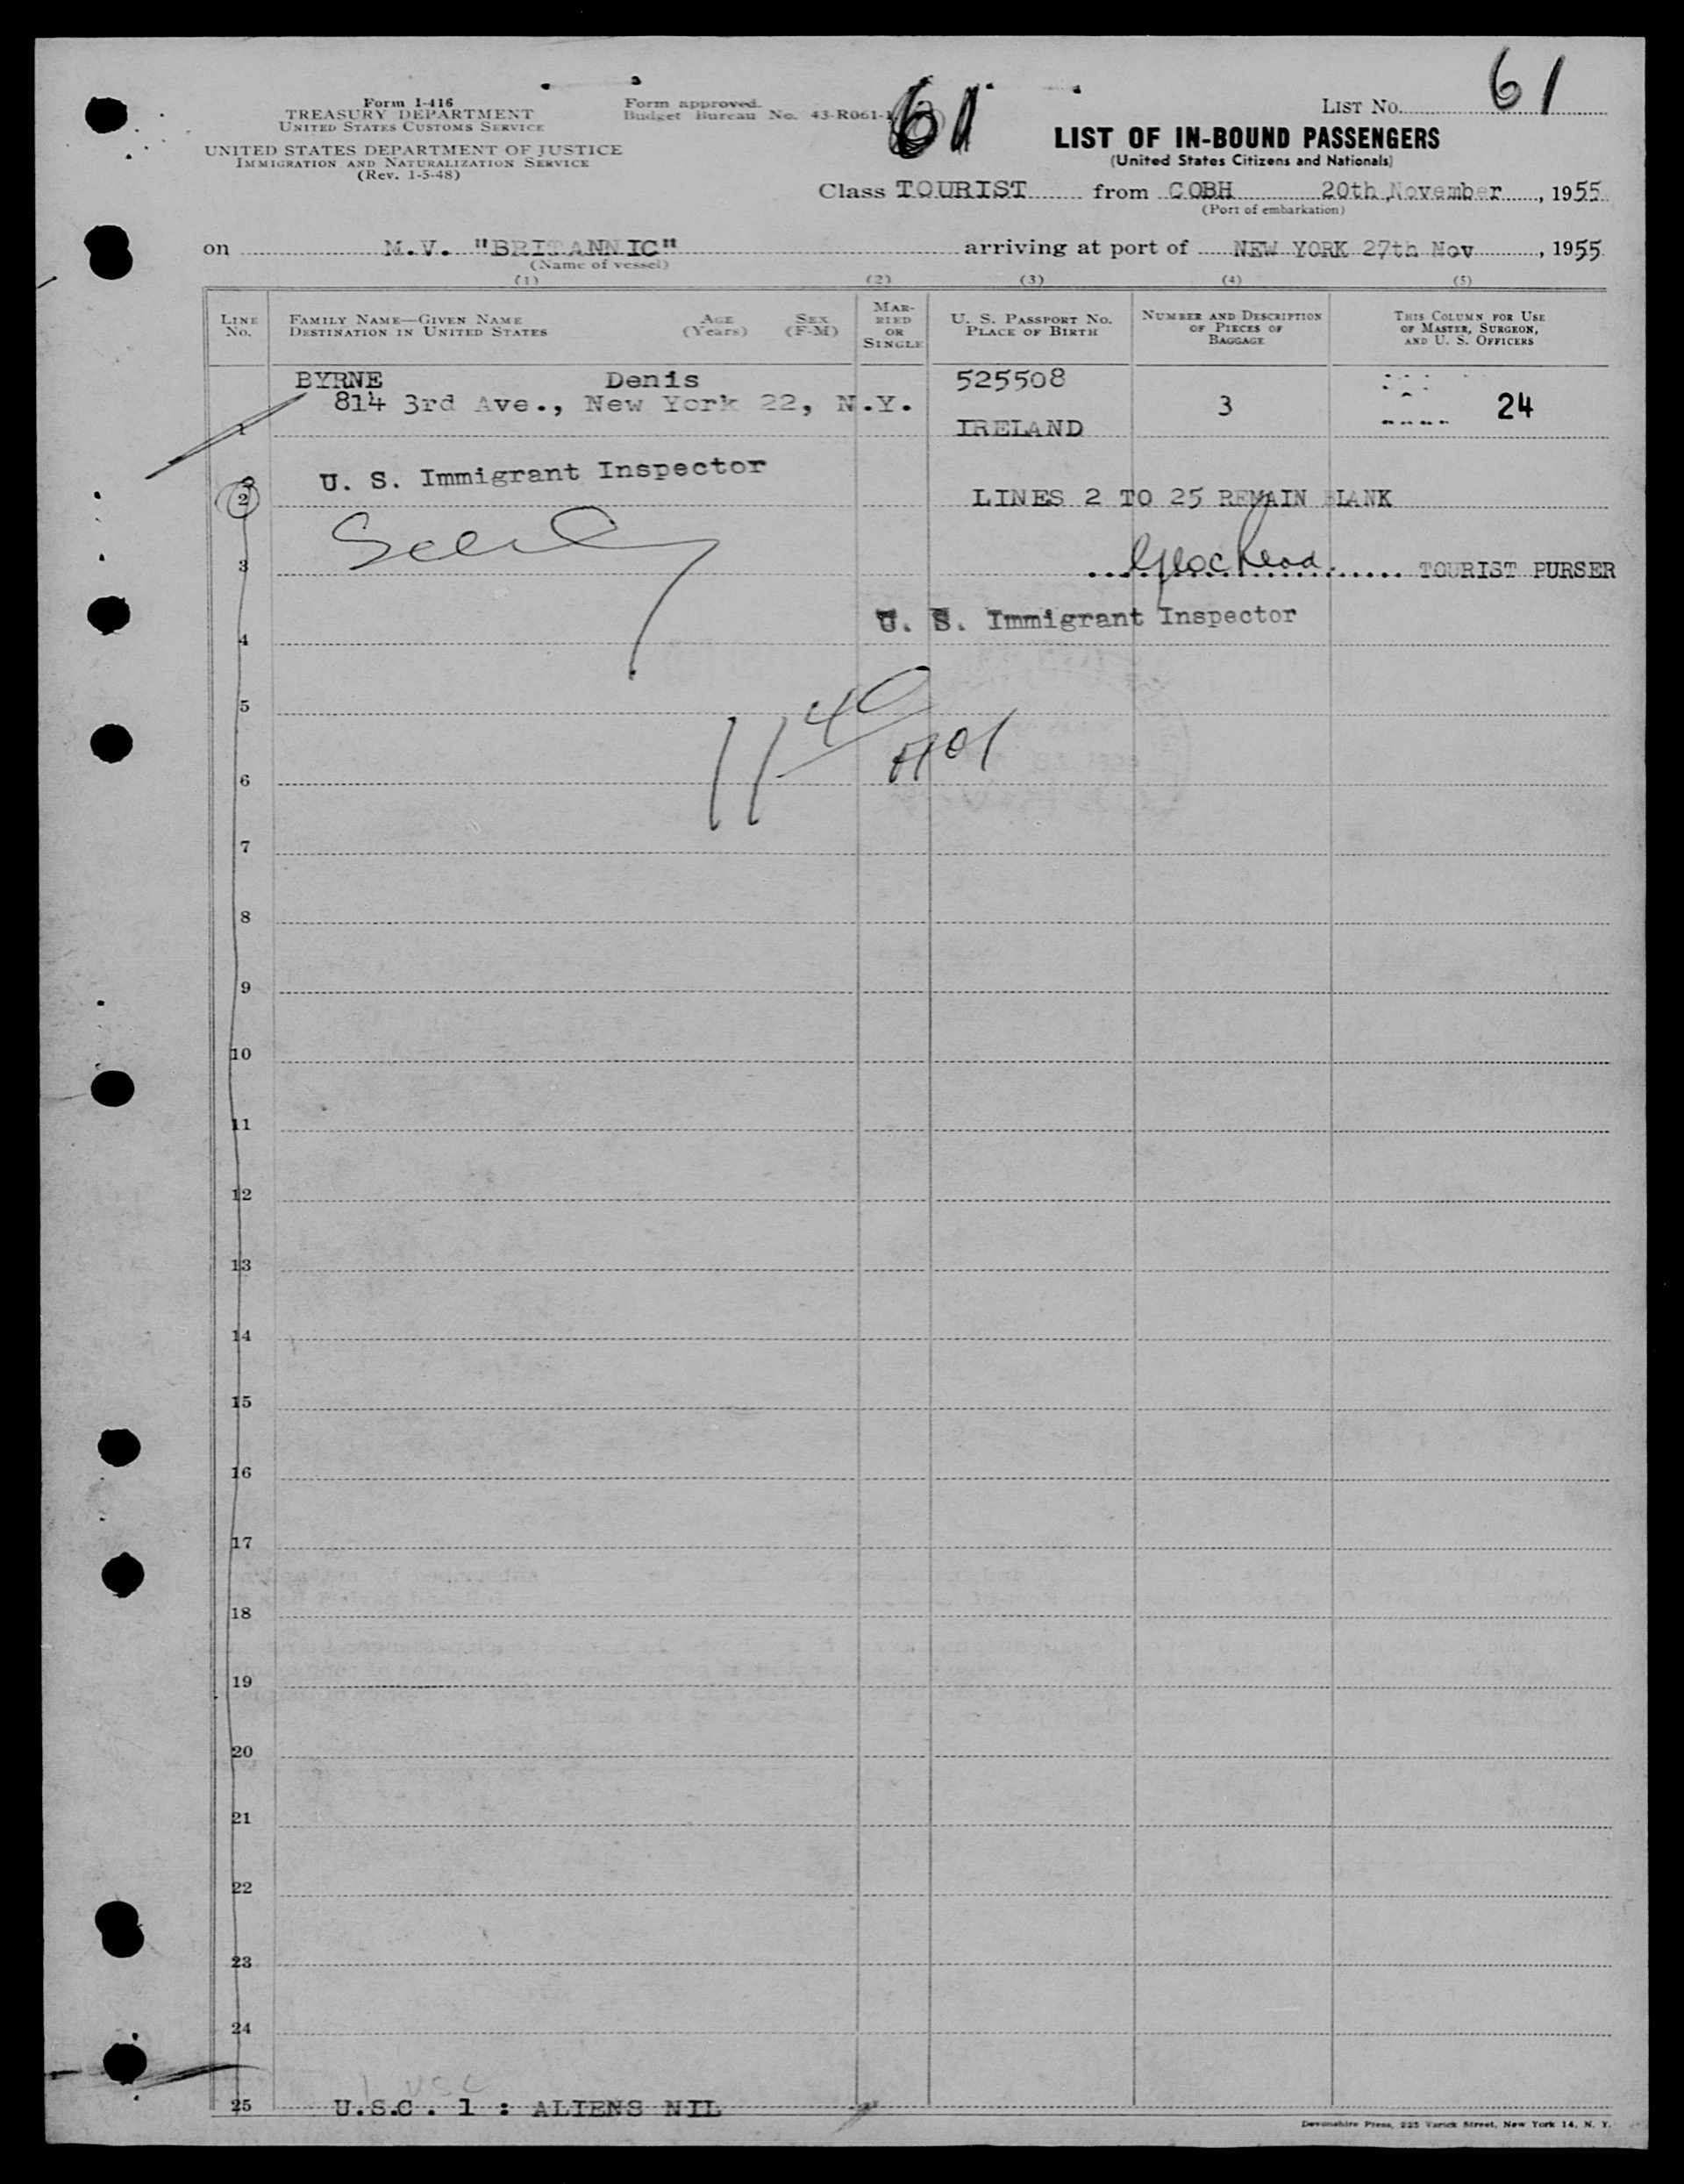 61
Form I-416
TREASURY DEPARTMENT
UNITED STATES CUSTOMS SERVICE
UNITED STATES DEPARTMENT OF JUSTICE
IMMIGRATION AND NATURALIZATION SERVICE
(Rev. 1-5-48)
Form approved.
Budget Bureau No. 43-R061-1
61
LIST No.
LIST OF IN-BOUND PASSENGERS
(United States Citizens and Nationals)
Class TOURIST from COBH 20th November, 1955
(Port of embarkation)
on M.V. "BRITANNIC" arriving at port of NEW YORK 27th Nov, 1955
(Name of vessel)
(1) (2) (3) (4) (5)
LINE No.
FAMILY NAME—GIVEN NAME AGE SEX
DESTINATION IN UNITED STATES (Years) (F-M)
MARRIED OR SINGLE
U. S. PASSPORT No.
PLACE OF BIRTH
NUMBER AND DESCRIPTION
OF PIECES OF
BAGGAGE
THIS COLUMN FOR USE
OF MASTER, SURGEON,
AND U. S. OFFICERS
BYRNE Denis 525508
814 3rd Ave., New York 22, N.Y. 3 24
1 IRELAND
U. S. Immigrant Inspector
2 LINES 2 TO 25 REMAIN BLANK
3 TOURIST PURSER
U. S. Immigrant Inspector
4
5
11 40
6
7
8
9
10
11
12
13
14
15
16
17
18
19
20
21
22
23
24
1 USC
25 U.S.C. 1 : ALIENS NIL
Devonshire Press, 225 Varick Street, New York 14, N. Y.